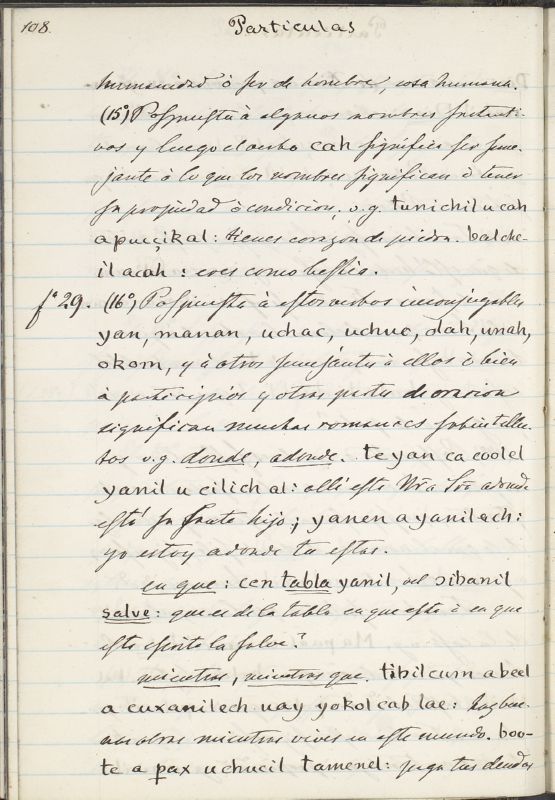 108.
Particulas
humanidad ò ser de hombre, cosa humana.
(15º) Pospuesta à algunos nombres sustanti-
vos y luego el verbo cah significa ser seme-
jante à lo que los nombres significan ò tener
su propiedad ò condicion, v.g. tunichil u cah
a pucçikal: tienes corazon de piedra. balche-
il a cah: eres como bestia.
fº 29. (16º) Pospuesta à estos verbos inconjugables
yan, manan, uchac, uchuc, dah, unah,
okom, y à otros semejantes à ellos ò bien
à participios y otras partes de oracion
significan muchos romances subintellec-
tos v.g. donde, adonde. te yan ca coolel
yanil u cilich al: alli està Nrã Srã adonde
està su Santo hijo; yanen a yanilech:
yo estoy adonde tu estas.
en que: cen tabla yanil, vel oibanil
salve: que es de la tabla en que està ò en que
està escrita la salve?
mientras, mientras que. tibilcum a beel
a cuxanilech uay yokol cab lae: haz bue-
nas obras mientras vives en este mundo. boo-
te a pax uchucil tamenel: paga tus deudas